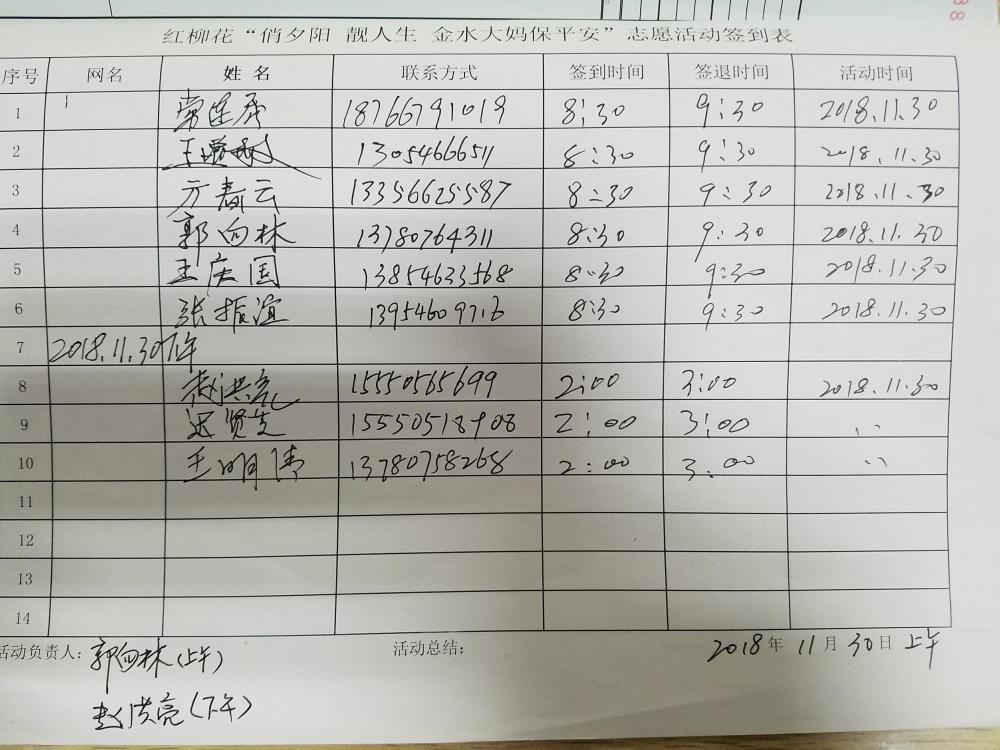 红柳花“俏夕阳 靓人生 金水大妈保平安”志愿活动签到表
序号 网名 姓名 联系方式 签到时间 签退时间 活动时间
1 常连成 18766791019 8:30 9:30 2018.11.30
2 13054666511 8:30 9:30 2018.11.30
3 方春云 13356625587 8:30 9:30 2018.11.30
4 郭向林 13780764311 8:30 9:30 2018.11.30
5 王庆国 13854633568 8:30 9:30 2018.11.30
6 张振谊 13954609716 8:30 9:30 2018.11.30
7 2018.11.30下午
8 赵洪亮 15550565699 2:00 3:00 2018.11.30
9 迟贤先 15550518908 2:00 3:00 ,,
10 王明伟 13780758268 2:00 3:00 ,,
11
12
13
14
活动负责人: 郭向林(上午) 活动总结: 2018年11月30日上午
赵洪亮(下午)